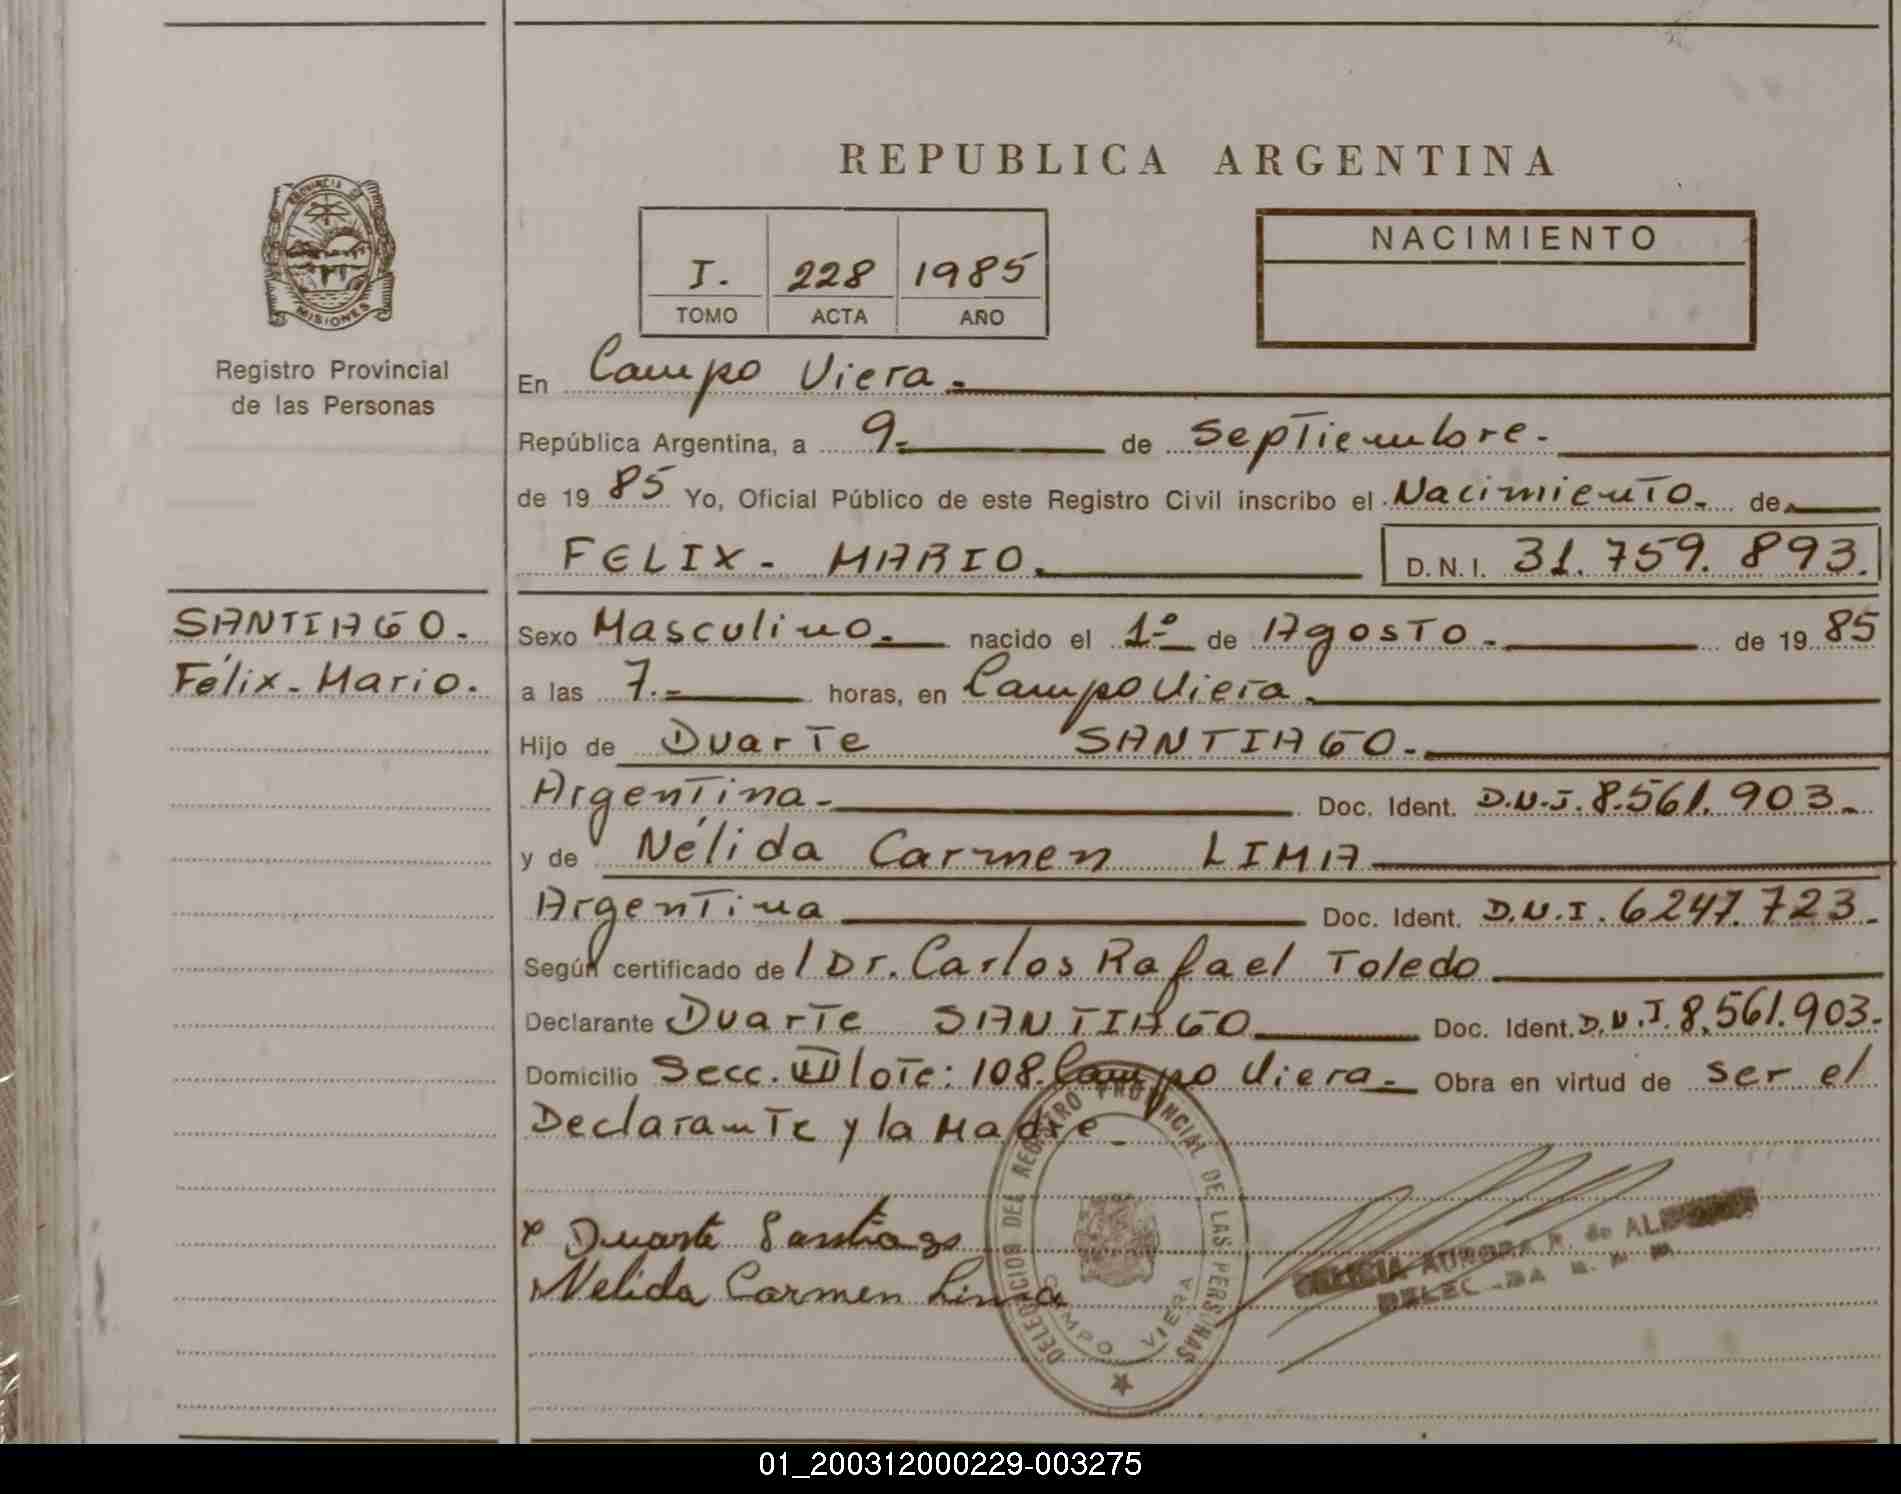 REPUBLICA ARGENTINA
PROVINCIA DE
MISIONES
Registro Provincial
de las Personas
I. 228 1985
TOMO ACTA AÑO
NACIMIENTO
En Campo Viera.
República Argentina, a 9. de Septiembre.
de 19 85 Yo, Oficial Público de este Registro Civil inscribo el Nacimiento. de
FELIX - MARIO. D.N.I. 31.759.893.
SANTIAGO.
Félix - Mario.
Sexo Masculino. nacido el 1º de Agosto. de 19 85
a las 7. horas, en Campo Viera.
Hijo de Duarte SANTIAGO.
Argentina. Doc. Ident. D.N.I. 8.561.903.
y de Nélida Carmen LIMA
Argentina Doc. Ident. D.N.I. 6247.723.
Según certificado de / Dr. Carlos Rafael Toledo
Declarante Duarte SANTIAGO Doc. Ident. D.N.I. 8.561.903.
Domicilio Secc. VII lote: 108. Campo Viera. Obra en virtud de ser el
Declarante y la Madre.
Duarte Santiago
Nelida Carmen Lima
DELEGACION DEL REGISTRO PROVINCIAL DE LAS PERSONAS
CAMPO VIERA
AURORA R. de
01_200312000229-003275